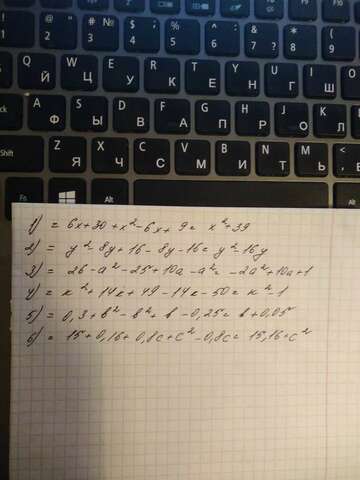 ! 1 " 2 # № 3 $ ; 4 % : 5 6 & ? 7 * 8 ( 9
Q Й W Ц E У R К T Е Y Н U Г I Ш
A Ф S Ы D В F А G П H Р J О K Л
Shift Z Я X Ч C С V М B И N Т M Ь
Fn Alt
1) = 6x+30+x²-6x+9 = x²+39
2) = y²-8y+16-8y-16 = y²-16y
3) = 26-a²-25+10a-a² = -2a²+10a+1
4) = k²+14k+49-14k-50 = k²-1
5) = 0,3+b²-b²+b-0,25 = b+0,05
6) = 15+0,16+0,8c+c²-0,8c = 15,16+c²